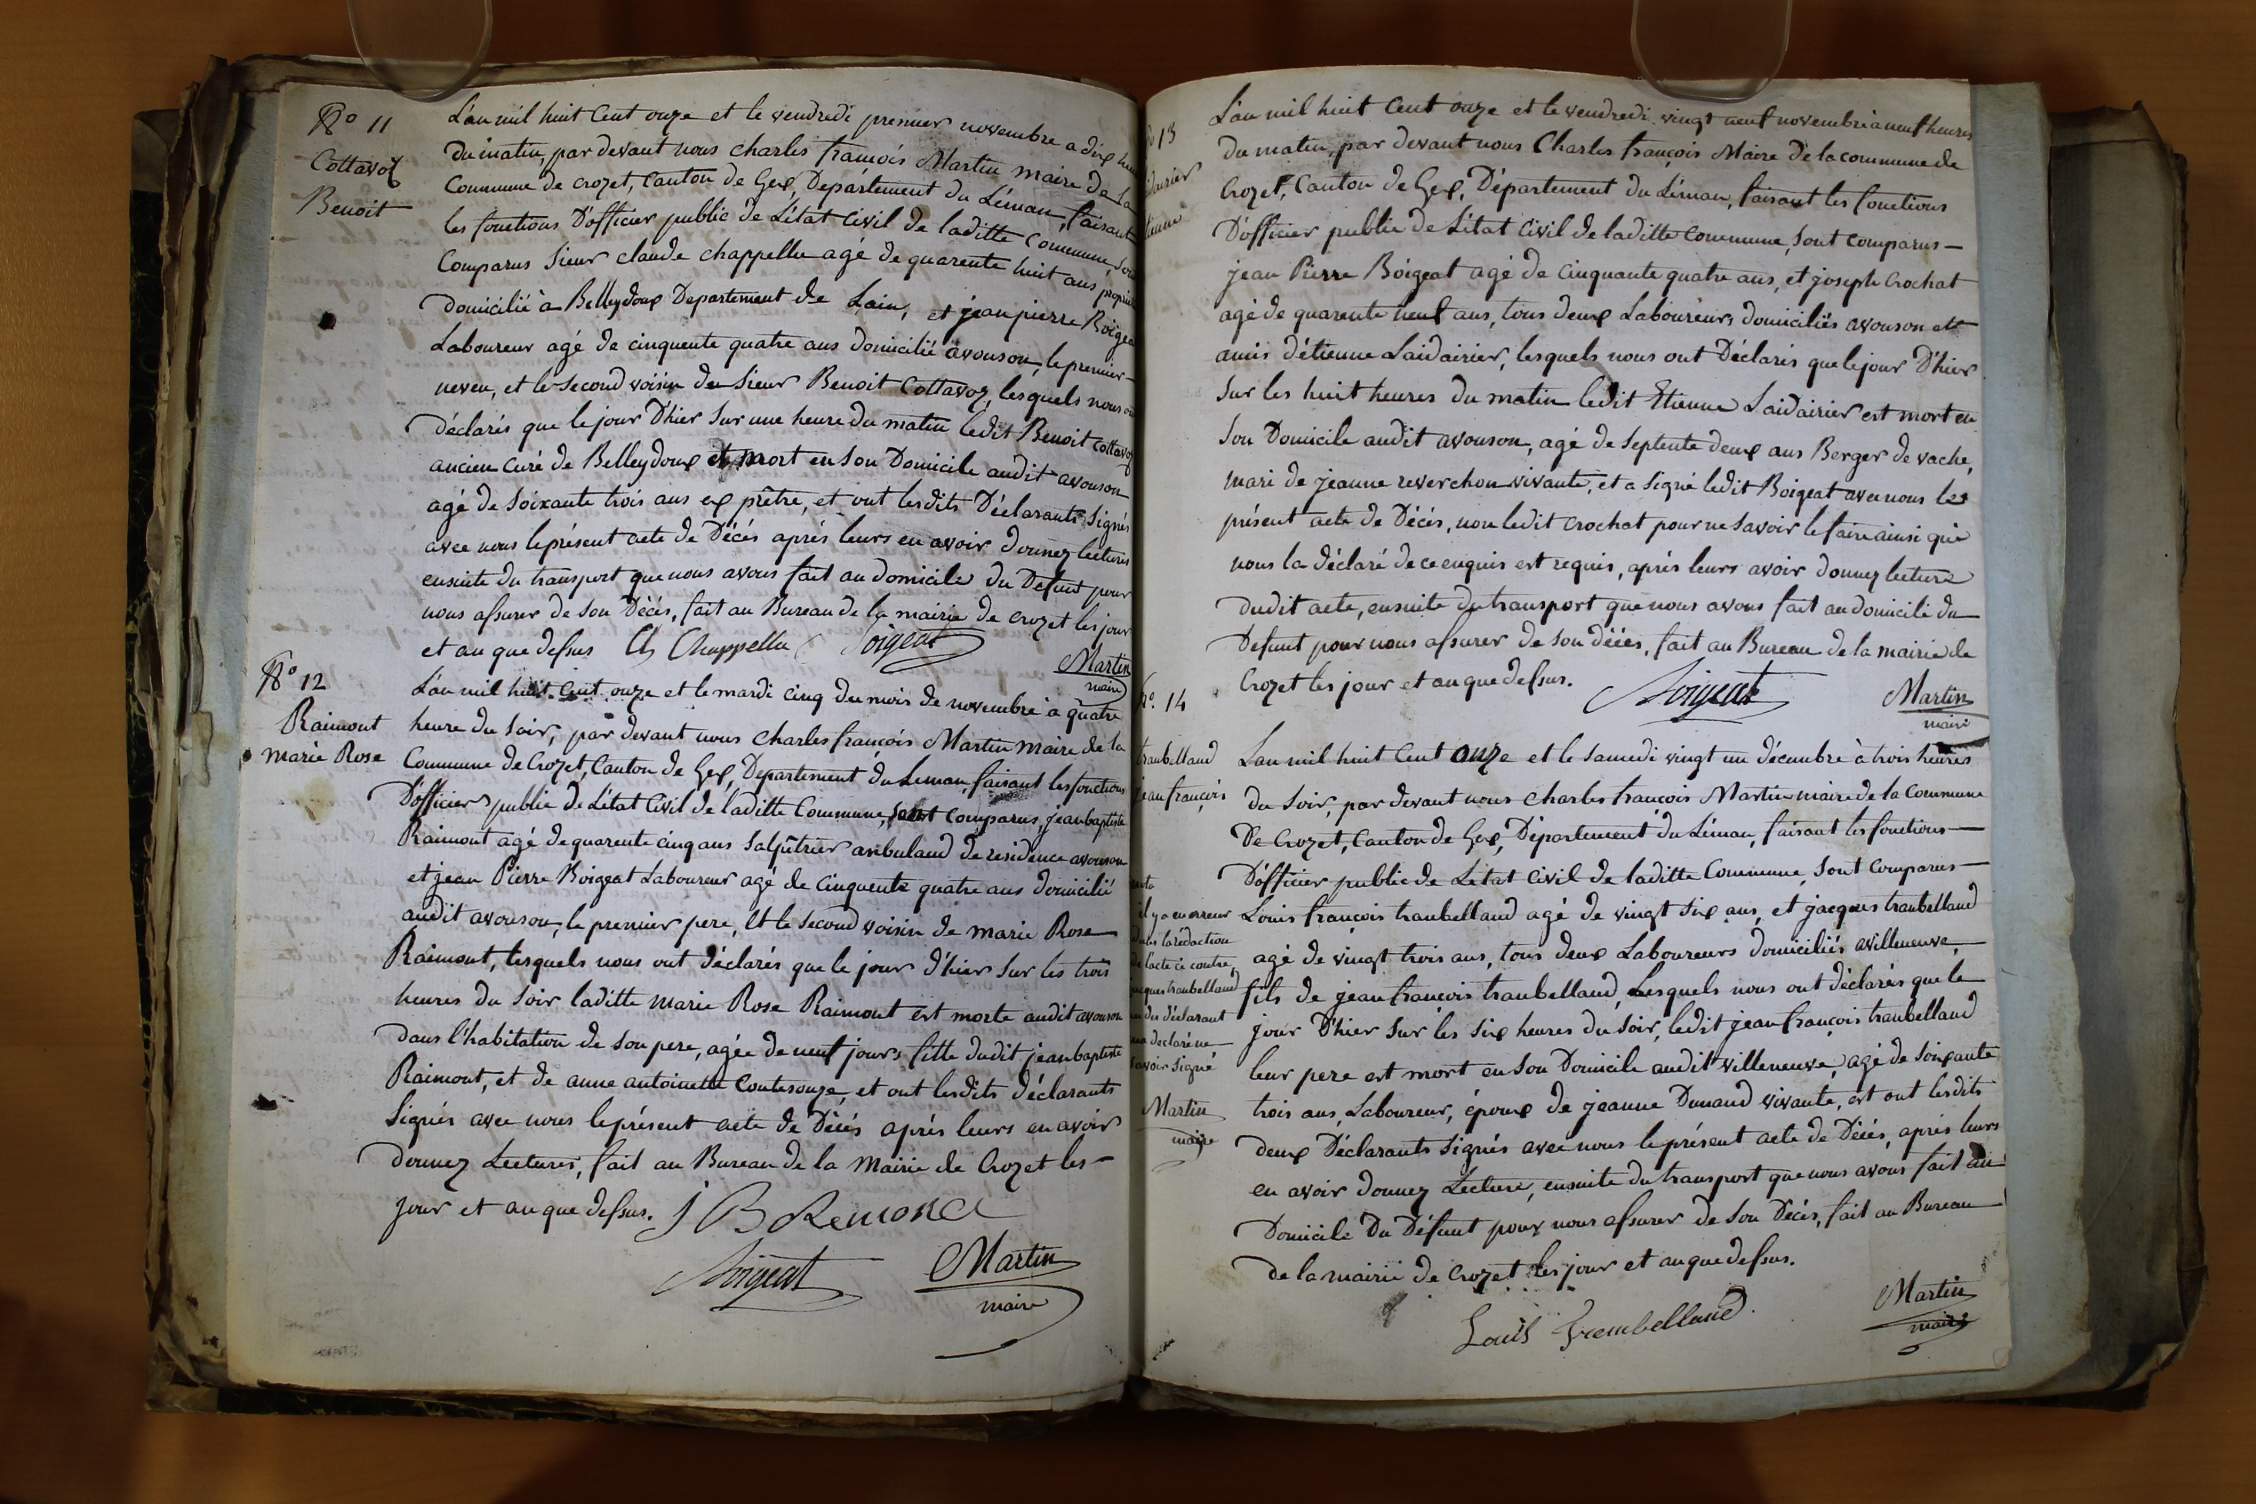 No 11
Cottavoz
Benoit
L'an mil huit Cent onze et le vendredi premier novembre a dix
du matin, par devant nous charles francois Martin maire de la
Commune de crozet, Canton de Gex, Département du Léman, faisant
les fonctions D'officier public de L'état Civil de laditte Commune, sont
Comparus Sieur claude chappellu agé de quarente huit ans
domicilié à Belleydoux Departement de Lain, et jean pierre Boigeat
Laboureur agé de cinquente quatre ans domicilié avouson, le premier
neveu, et le second voisin du Sieur Benoit Cottavoz, lesquels nous
déclarés que le jour D'hier sur une heure du matin ledit Benoit Cottavoz
ancien Curé de Belleydoux et mort en son Domicile audit avouson
agé de soixante trois ans ex prêtre, et ont lesdits Déclarants signés
avec nous le présent acte de Décés aprés leurs en avoir donnez lectures
ensuite du transport que nous avons fait au domicile du Defunt pour
nous assurer de son Décés, fait au Bureau de la mairie de crozet les jour
et an que dessus Ch Chappellu Boigeat
Martin
maire
No 12
Raimont
marie Rose
L'an mil huit Cent onze et le mardi cinq du mois de novembre à quatre
heure du soir, par devant nous charles francois Martin maire de la
Commune de Crozet, Canton de Gex, Departement du Leman, faisant les fonctions
D'officier public de L'état Civil de laditte Commune, sont Comparus, jean baptiste
Raimont agé de quarente cinq ans Salpêtrier ambuland de residence avouson
et jean Pierre Boigeat Laboureur agé de Cinquente quatre ans domicilié
audit avouson, le premier pere, et le second voisin de marie Rose
Raimont, lesquels nous ont déclarés que le jour d'hier sur les trois
heures du soir laditte marie Rose Raimont est morte audit avouson
dans l'habitation de son pere, agée de neuf jours fille dudit jean baptiste
Raimont, et de anne antoinette Contesouze, et ont lesdits déclarants
Signés avec nous le présent acte de Décés aprés leurs en avoir
donnez Lectures, fait au Bureau de la Mairie de Crozet les
jour et an que dessus. J B Remond
Boigeat
Martin
maire
13
L'an mil huit Cent onze et le vendredi vingt neuf novembre à neuf heures
du matin, par devant nous Charles françois Maire de la commune de
Crozet, Canton de Gex, Département du Léman, faisant les fonctions
D'officier public de L'état Civil de laditte Commune, sont comparus
jean Pierre Boigeat agé de Cinquante quatre ans, et joseph Crochat
agé de quarente neuf ans, tous deux Laboureurs domiciliés avouson et
amis d'étienne Laidairier, lesquels nous ont Déclarés que le jour D'hier
sur les huit heures du matin ledit Etienne Laidairier est mort en
son Domicile audit avouson, agé de Septente deux ans Berger de vache,
mari de jeanne reverchon vivante, et a signé ledit Boigeat avec nous les
présent acte de Décés, non ledit Crochat pour ne savoir le faire ainsi que
nous la déclaré de ce enquis est requis, aprés leurs avoir donnez lecture
dudit acte, ensuite du transport que nous avons fait au domicile du
Defunt pour nous assurer de son décés, fait au Bureau de la mairie de
Crozet les jour et an que dessus.
Boigeat
Martin
maire
No. 14
tranbelland
jean françois
Lan mil huit Cent onze et le samedi vingt un décembre à trois heures
du soir, par devant nous charles françois Martin maire de la Commune
De Crozet, Canton de Gex, Département du Léman, faisant les fonctions
D'officier public de L'état Civil de laditte Commune, sont comparus
Louis françois tranbelland agé de vingt six ans, et jacques tranbelland
agé de vingt trois ans, tous deux Laboureurs domiciliés avilleneuve,
fils de jean francois tranbelland, Lesquels nous ont déclarés que le
jour D'hier sur les six heures du soir, ledit jean françois tranbelland
leur pere est mort en son Domicile audit villeneuve, agé de soixante
trois ans, Laboureur, époux de jeanne Dunand vivante, et ont lesdits
deux Déclarants signés avec nous le présent acte de Décés, aprés leurs
en avoir donnez Lecture, ensuite du transport que nous avons fait au
Domicile Du Défunt pour nous assurer de son Décés, fait au Bureau
de la mairie de Crozet les jour et an que dessus.
il y a eu erreur
dans la rédaction
de lacte ci contre,
jacques tranbelland
un des déclarant
ma declaré ne
savoir signé
Martin
maire
Louis Trembelland
Martin
maire